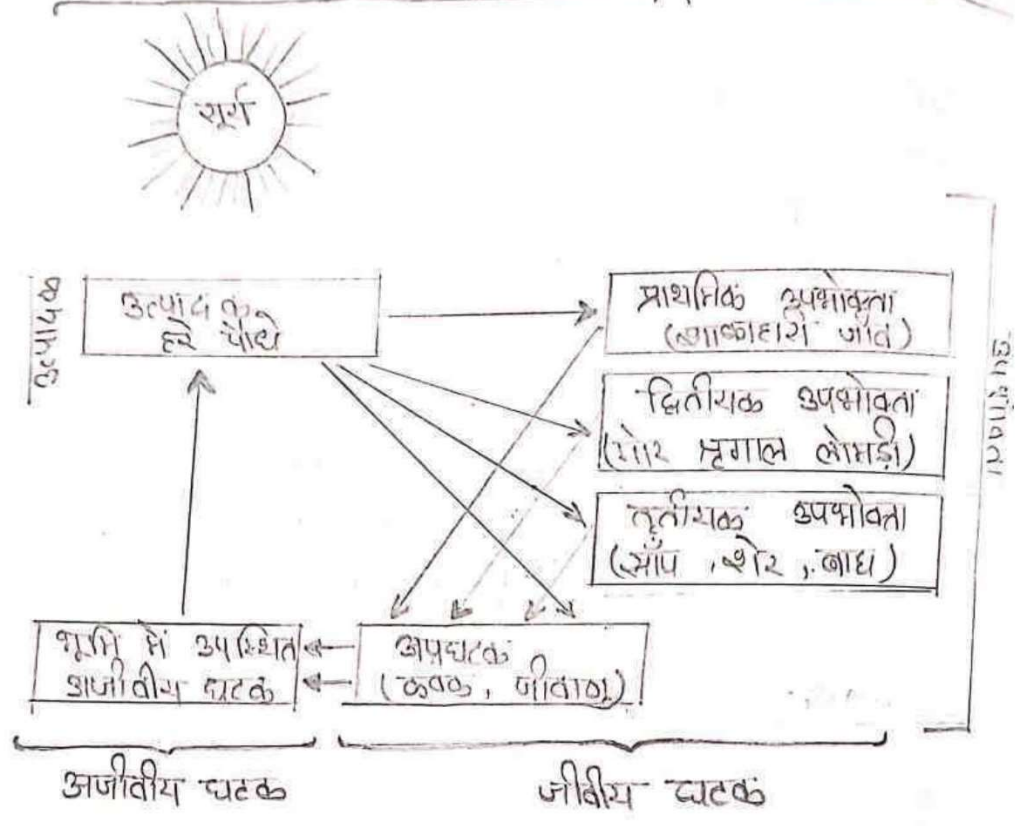 सूर्य
उत्पादक
उत्पादक
हरे पौधे
प्राथमिक उपभोक्ता
(शाकाहारी जीव)
द्वितीयक उपभोक्ता
(मोर श्रृगाल लोमड़ी)
तृतीयक उपभोक्ता
(साँप , शेर , बाघ)
उपभोक्ता
भूमि में उपस्थित
अजीवीय घटक
अपघटक
(कवक, जीवाणु)
अजीवीय घटक
जीवीय घटक